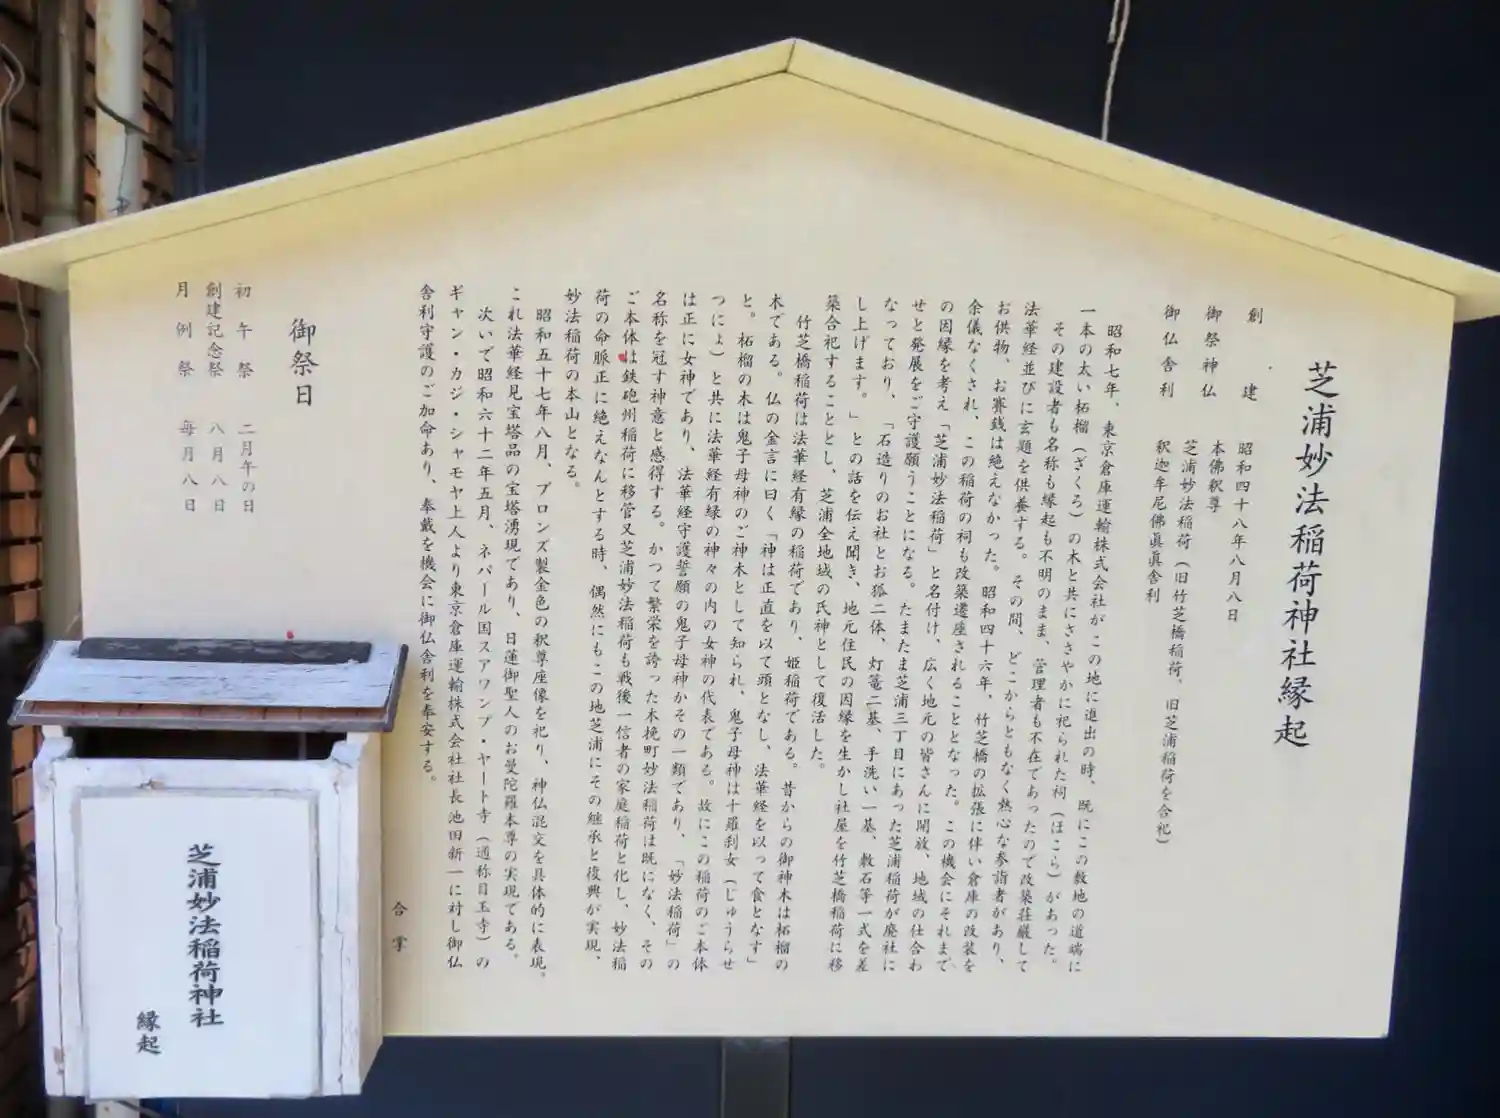 芝浦妙法稲荷神社縁起
創建 昭和四十八年八月八日
御祭神仏 本佛釈尊
芝浦妙法稲荷(旧竹芝橋稲荷。旧芝浦稲荷を合祀)
御仏舎利 釈迦牟尼佛眞眞舎利
昭和七年、東京倉庫運輸株式会社がこの地に進出の時、既にこの敷地の道端に
一本の太い柘榴(ざくろ)の木と共にささやかに祀られた祠(ほこら)があった。
その建設者も名称も縁起も不明のまま、管理者も不在であったので改築荘厳して
法華経並びに玄題を供養する。その間、どこからともなく熱心な参詣者があり、
お供物、お賽銭は絶えなかった。昭和四十六年、竹芝橋の拡張に伴い倉庫の改装を
余儀なくされ、この稲荷の祠も改築遷座されることとなった。この機会にそれまで
の因縁を考え「芝浦妙法稲荷」と名付け、広く地元の皆さんに開放、地域の仕合わ
せと発展をご守護願うことになる。たまたま芝浦三丁目にあった芝浦稲荷が廃社に
なっており、「石造りのお社とお狐二体、灯篭二基、手洗い一基、敷石等一式を差
し上げます。」との話を伝え聞き、地元住民の因縁を生かし社屋を竹芝橋稲荷に移
築合祀することとし、芝浦全地域の氏神として復活した。
竹芝橋稲荷は法華経有縁の稲荷であり、姫稲荷である。昔からの御神木は柘榴の
木である。仏の金言に曰く「神は正直を以て頭となし、法華経を以って食となす」
と。柘榴の木は鬼子母神のご神木として知られ、鬼子母神は十羅刹女(じゅうらせ
つにょ)と共に法華経有縁の神々の内の女神の代表である。故にこの稲荷のご本体
は正に女神であり、法華経守護誓願の鬼子母神かその一類であり、「妙法稲荷」の
名称を冠す神意と感得する。かつて繁栄を誇った木挽町妙法稲荷は既になく、その
ご本体は鉄砲州稲荷に移管又芝浦妙法稲荷も戦後一信者の家庭稲荷と化し、妙法稲
荷の命脈正に絶えなんとする時、偶然にもこの地芝浦にその継承と復興が実現、
妙法稲荷の本山となる。
昭和五十七年八月、ブロンズ製金色の釈尊座像を祀り、神仏混交を具体的に表現。
これ法華経見宝塔品の宝塔湧現であり、日蓮御聖人のお曼陀羅本尊の実現である。
次いで昭和六十二年五月、ネパール国スアワンブ・ヤート寺(通称目玉寺)の
ギャン・カジ・シャモヤ上人より東京倉庫運輸株式会社社長池田新一に対し御仏
舎利守護のご加命あり、奉戴を機会に御仏舎利を奉安する。
合掌
御祭日
初午祭 二月午の日
創建記念祭 八月八日
月例祭 毎月八日
芝浦妙法稲荷神社
縁起